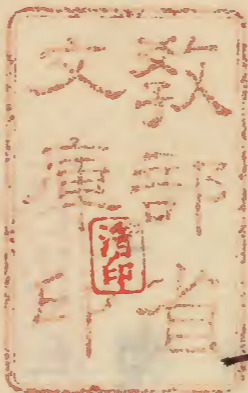 教部省
文庫印
消印